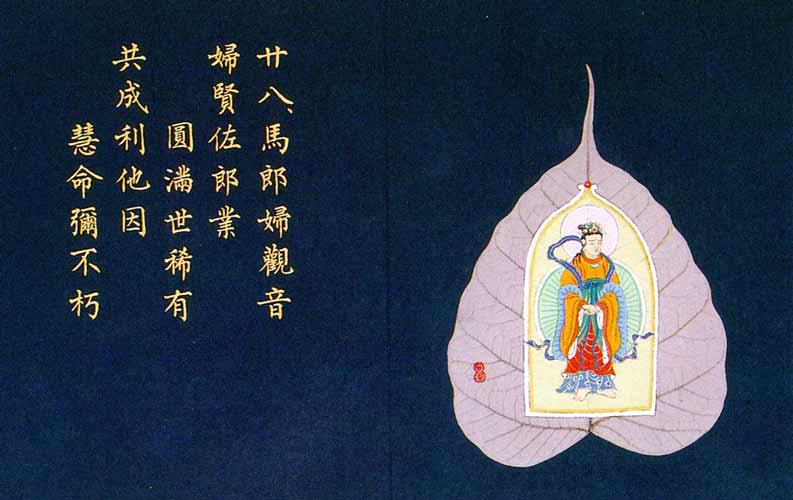 廿八、馬郎婦觀音
婦賢佐郎業
圓滿世稀有
共成利他因
慧命彌不朽